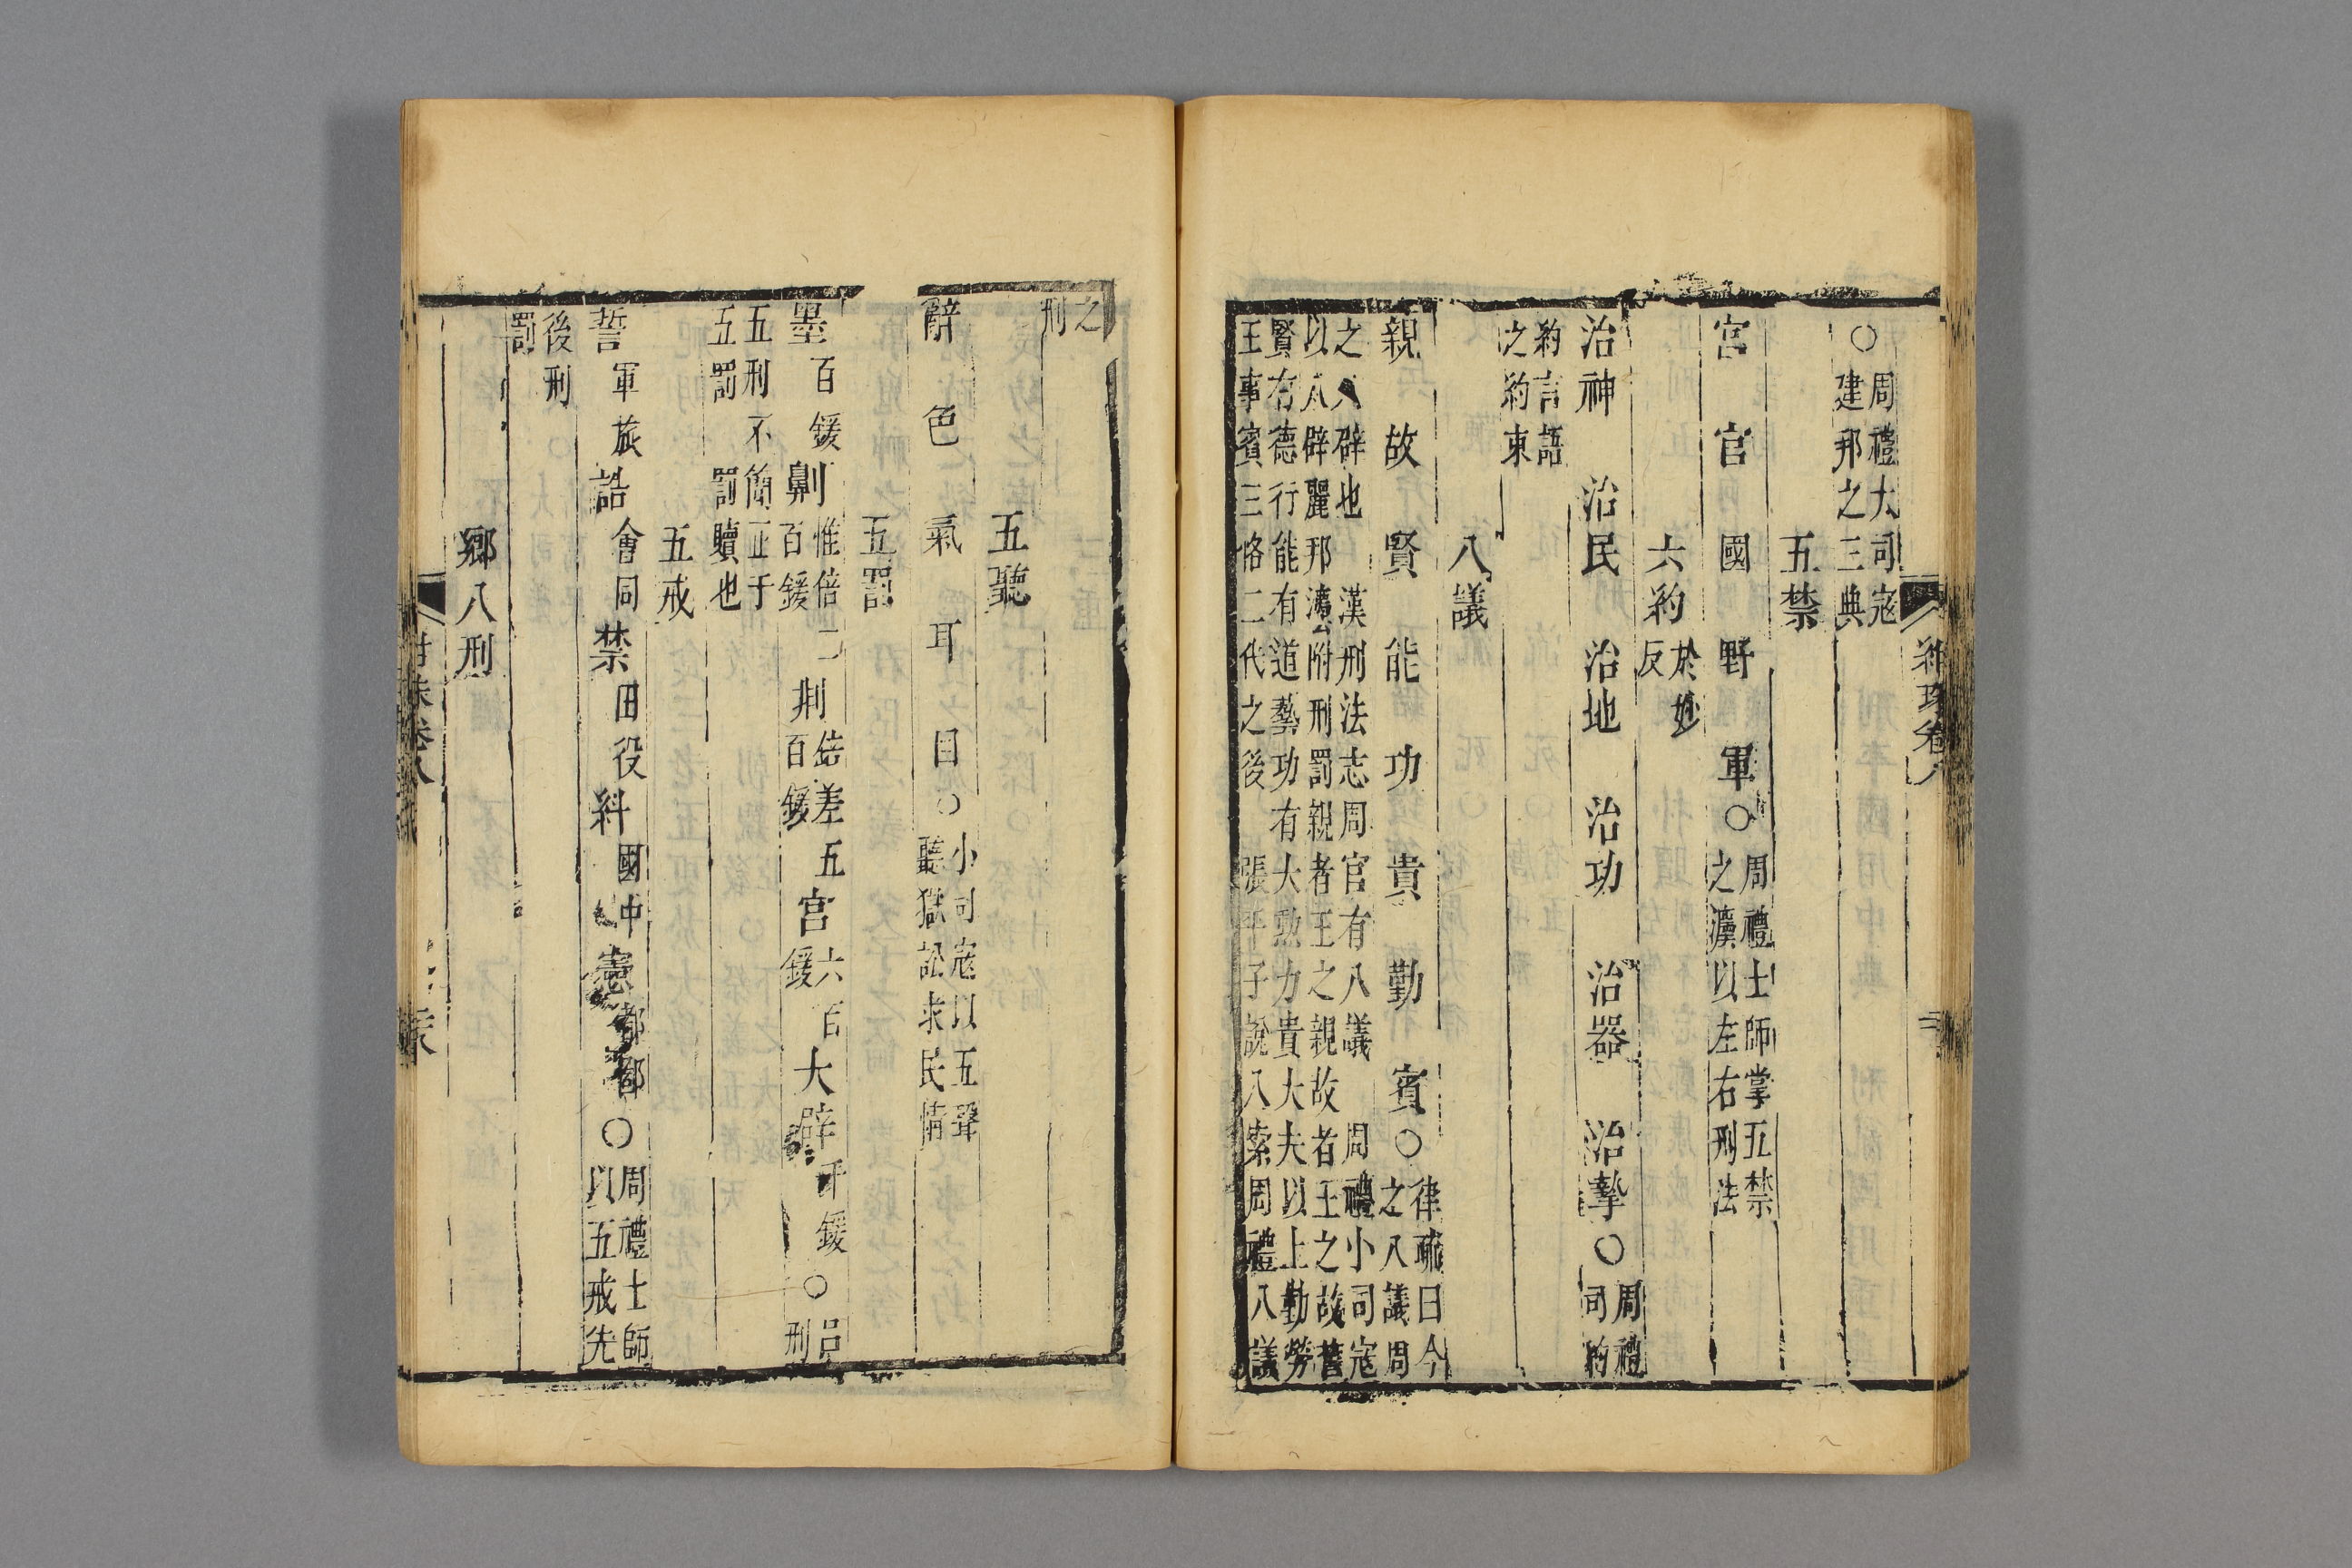 ○周禮大司寇建邦之三典
五禁
宮 官 國 野 軍○周禮士師掌五禁之灋以左右刑法
六約於妙反
治神 治民 治地 治功 治器 治摯○周禮司約
約言語之約束
八議
親 故 賢 能 功 貴 勤 賓○律疏曰今之八議周
之八辟也 漢刑法志周官有八議 周禮小司寇以八辟麗邦灋附刑罰親者王之親故者王之故舊
賢有德行能有道藝功有大勲力貴大夫以上勤勞王事賓三恪二代之後 張平子說八索周禮八議
之刑
五聽
辭 色 氣 耳 目○小司寇以五聲聽獄訟求民情
五罰
墨百鍰劓惟倍二百鍰剕倍差五百鍰宮六百鍰大辟千鍰○呂刑
五刑不簡正于五罰 罰贖也
五戒
誓軍旅誥會同禁田役糾國中憲都鄙○周禮士師以五戒先
後刑罰
鄉八刑